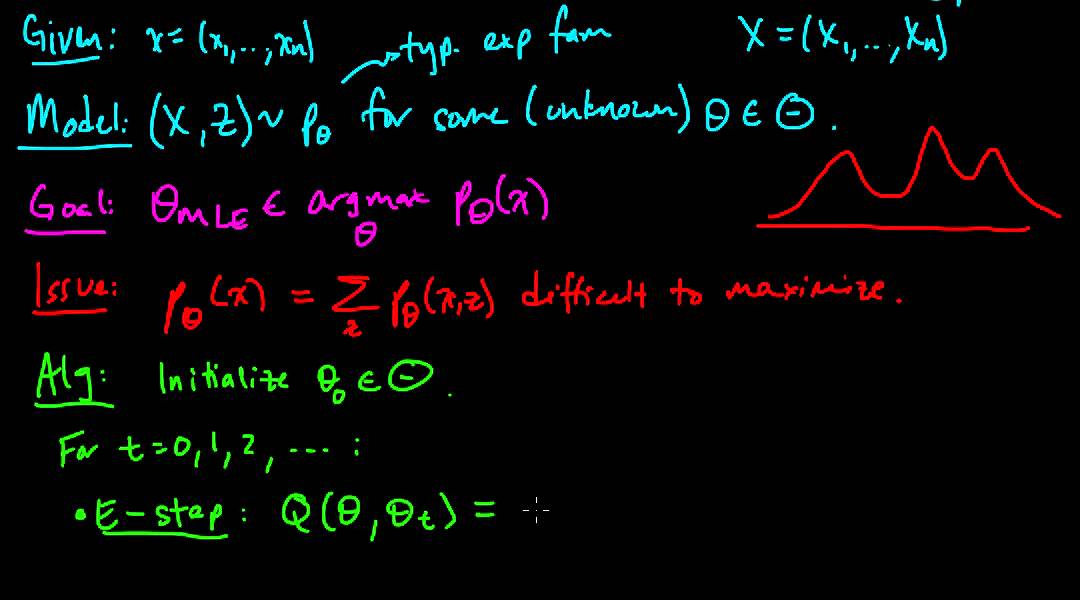 Given: x = (x₁,..,xₙ) typ. exp fam X = (X₁,...,Xₙ)
Model: (X,Z) ~ p_θ for some (unknown) θ ∈ Θ.
Goal: θ_MLE ∈ argmax_θ p_θ(x)
Issue: p_θ(x) = Σ_z p_θ(x,z) difficult to maximize.
Alg: Initialize θ₀ ∈ Θ.
For t=0,1,2,....:
• E-step: Q(θ,θ_t) =